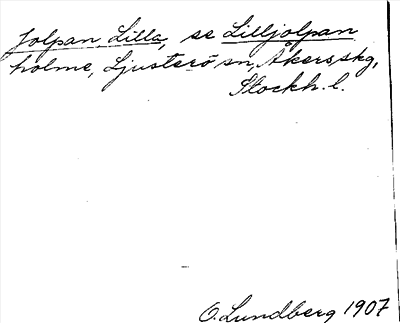 Jolpan, Lilla, se Lilljolpan
holme, Ljusterö sn, Åkers skg,
Stockh. l.
O. Lundberg 1907